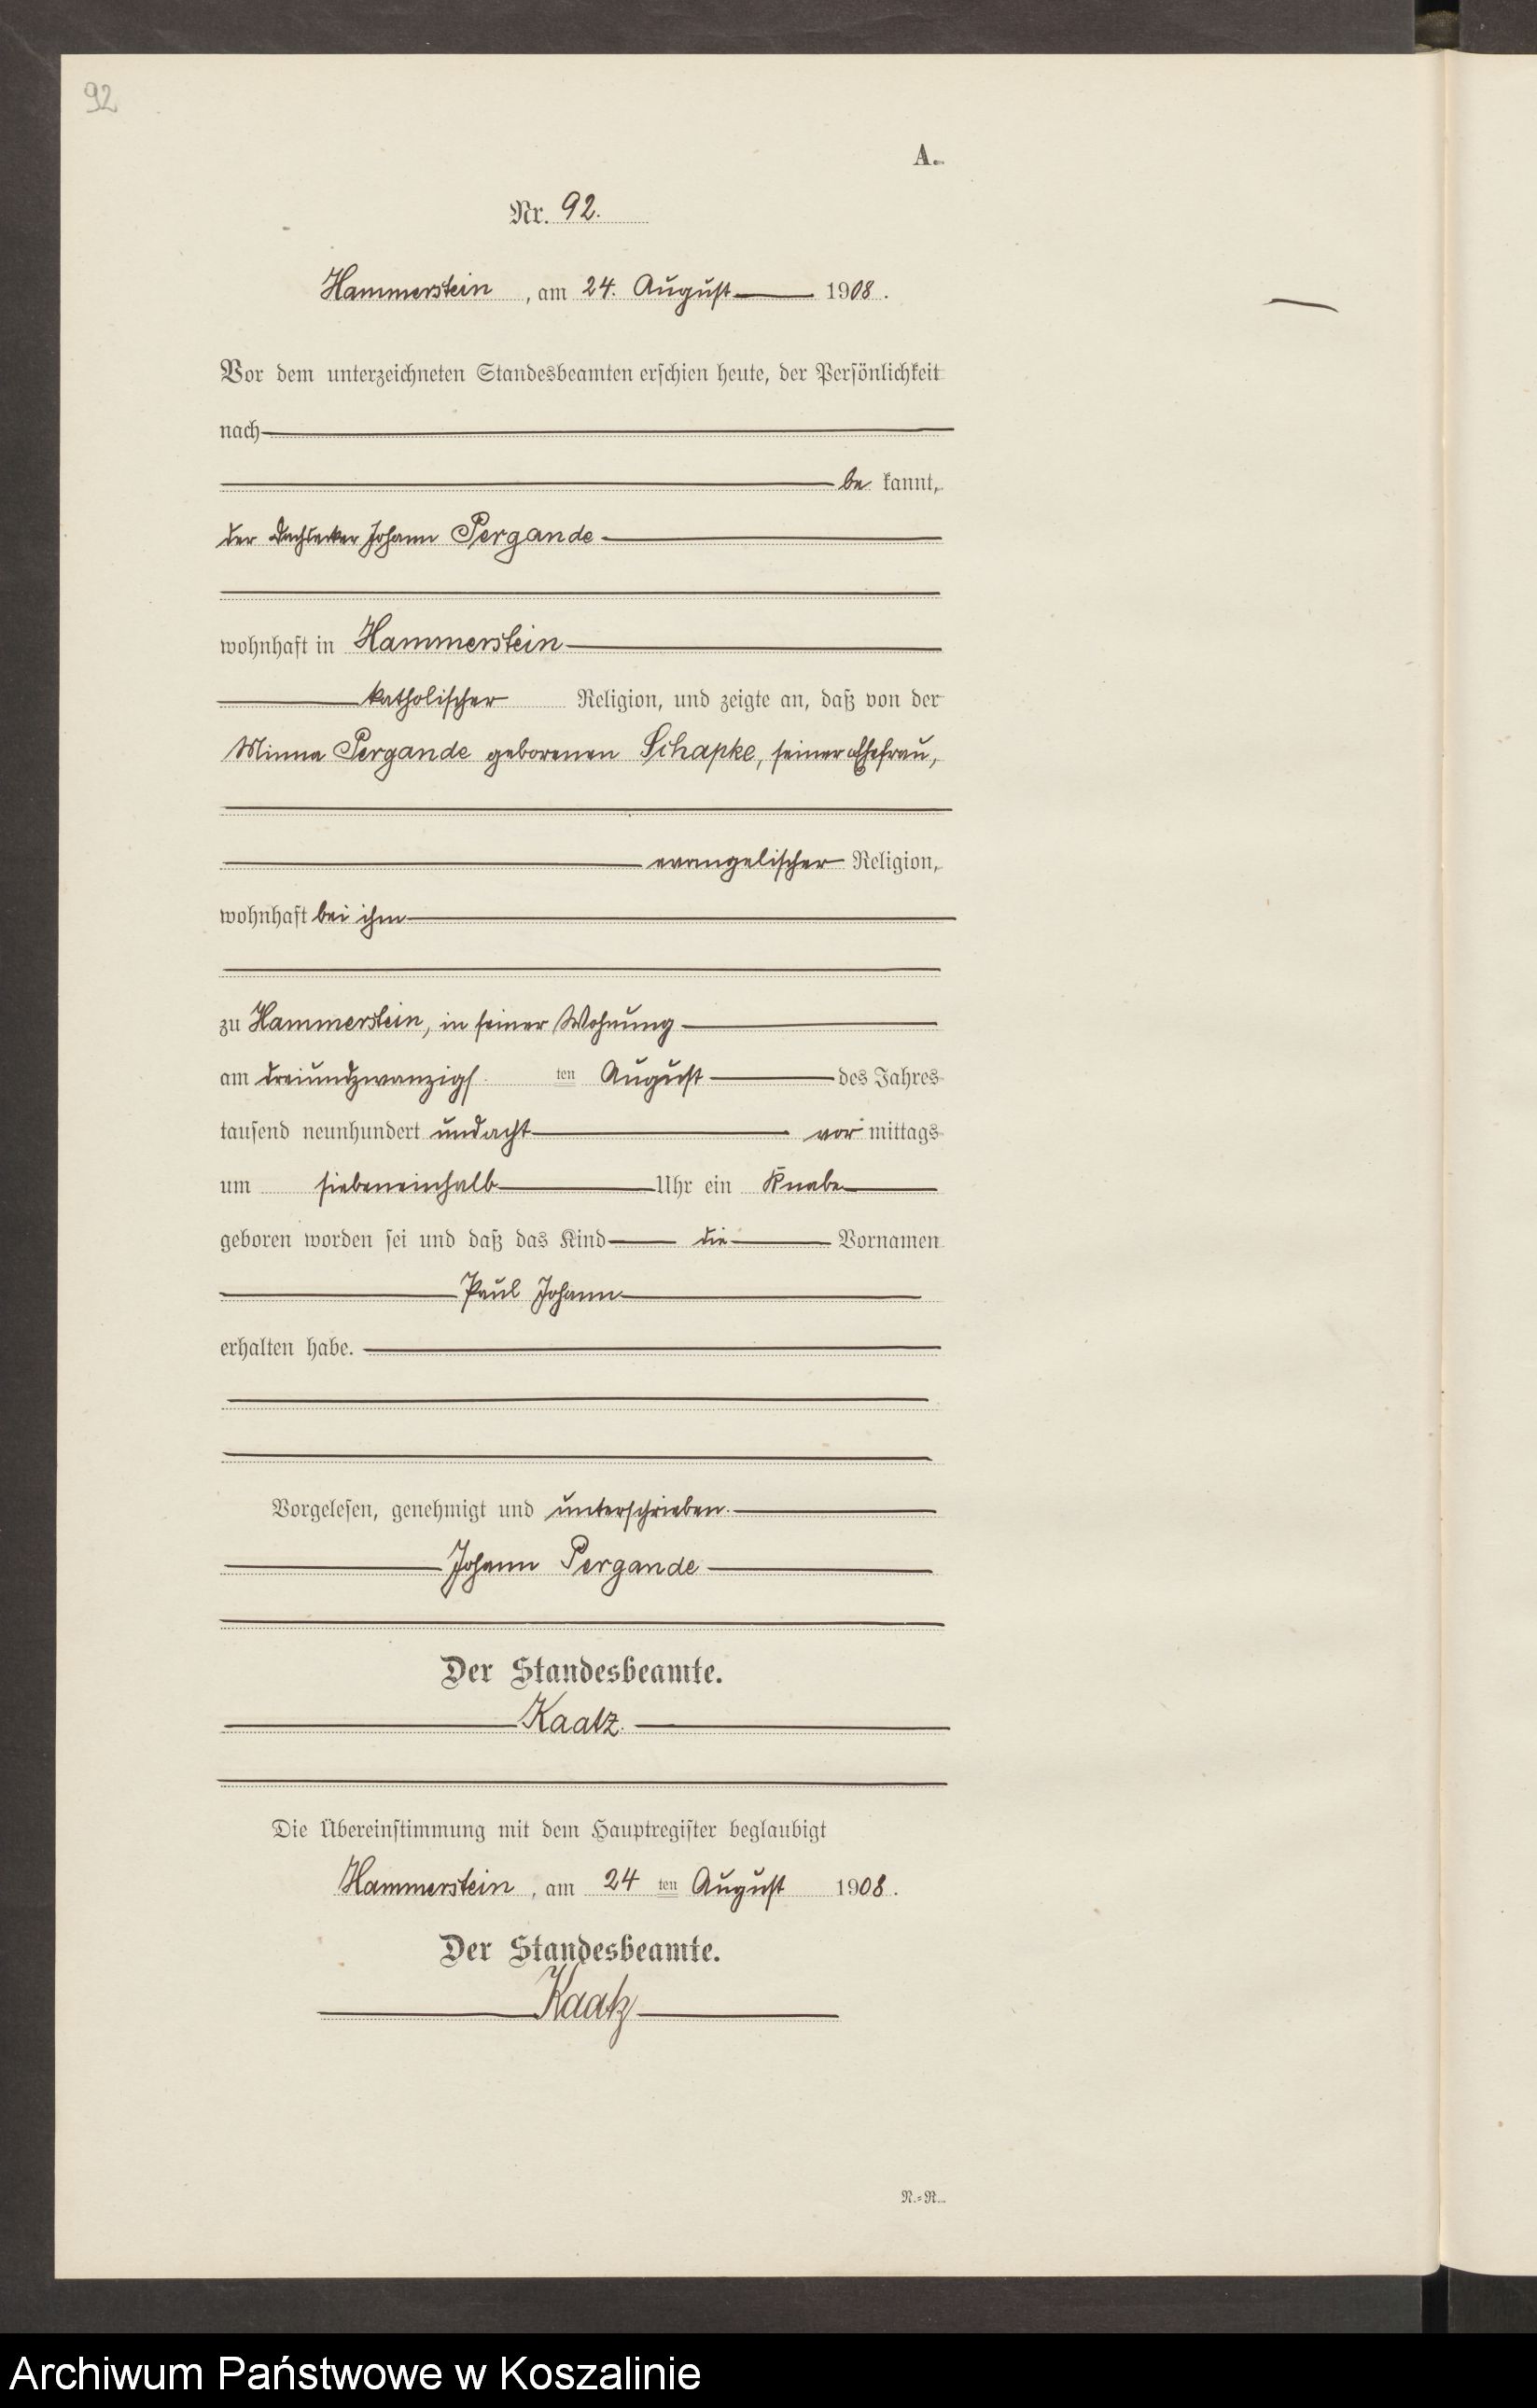 92
A.
Nr. 92.
Hammerstein, am 24. August 1908.
Vor dem unterzeichneten Standesbeamten erschien heute, der Persönlichkeit
nach
be kannt,
der Dachdecker Johann Pergande
wohnhaft in Hammerstein
katholischer Religion, und zeigte an, daß von der
Minna Pergande geborenen Schapke, seiner Ehefrau,
evangelischer Religion,
wohnhaft bei ihm
zu Hammerstein, in seiner Wohnung
am dreiundzwanzigs ten August des Jahres
tausend neunhundert undacht vor mittags
um siebeneinhalb Uhr ein Knabe
geboren worden sei und daß das Kind die Vornamen
Paul Johann
erhalten habe.
Vorgelesen, genehmigt und unterschrieben.
Johann Pergande
Der Standesbeamte.
Kaatz.
Die Übereinstimmung mit dem Hauptregister beglaubigt
Hammerstein, am 24 ten August 1908.
Der Standesbeamte.
Kaatz
N.=R.
Archiwum Państwowe w Koszalinie